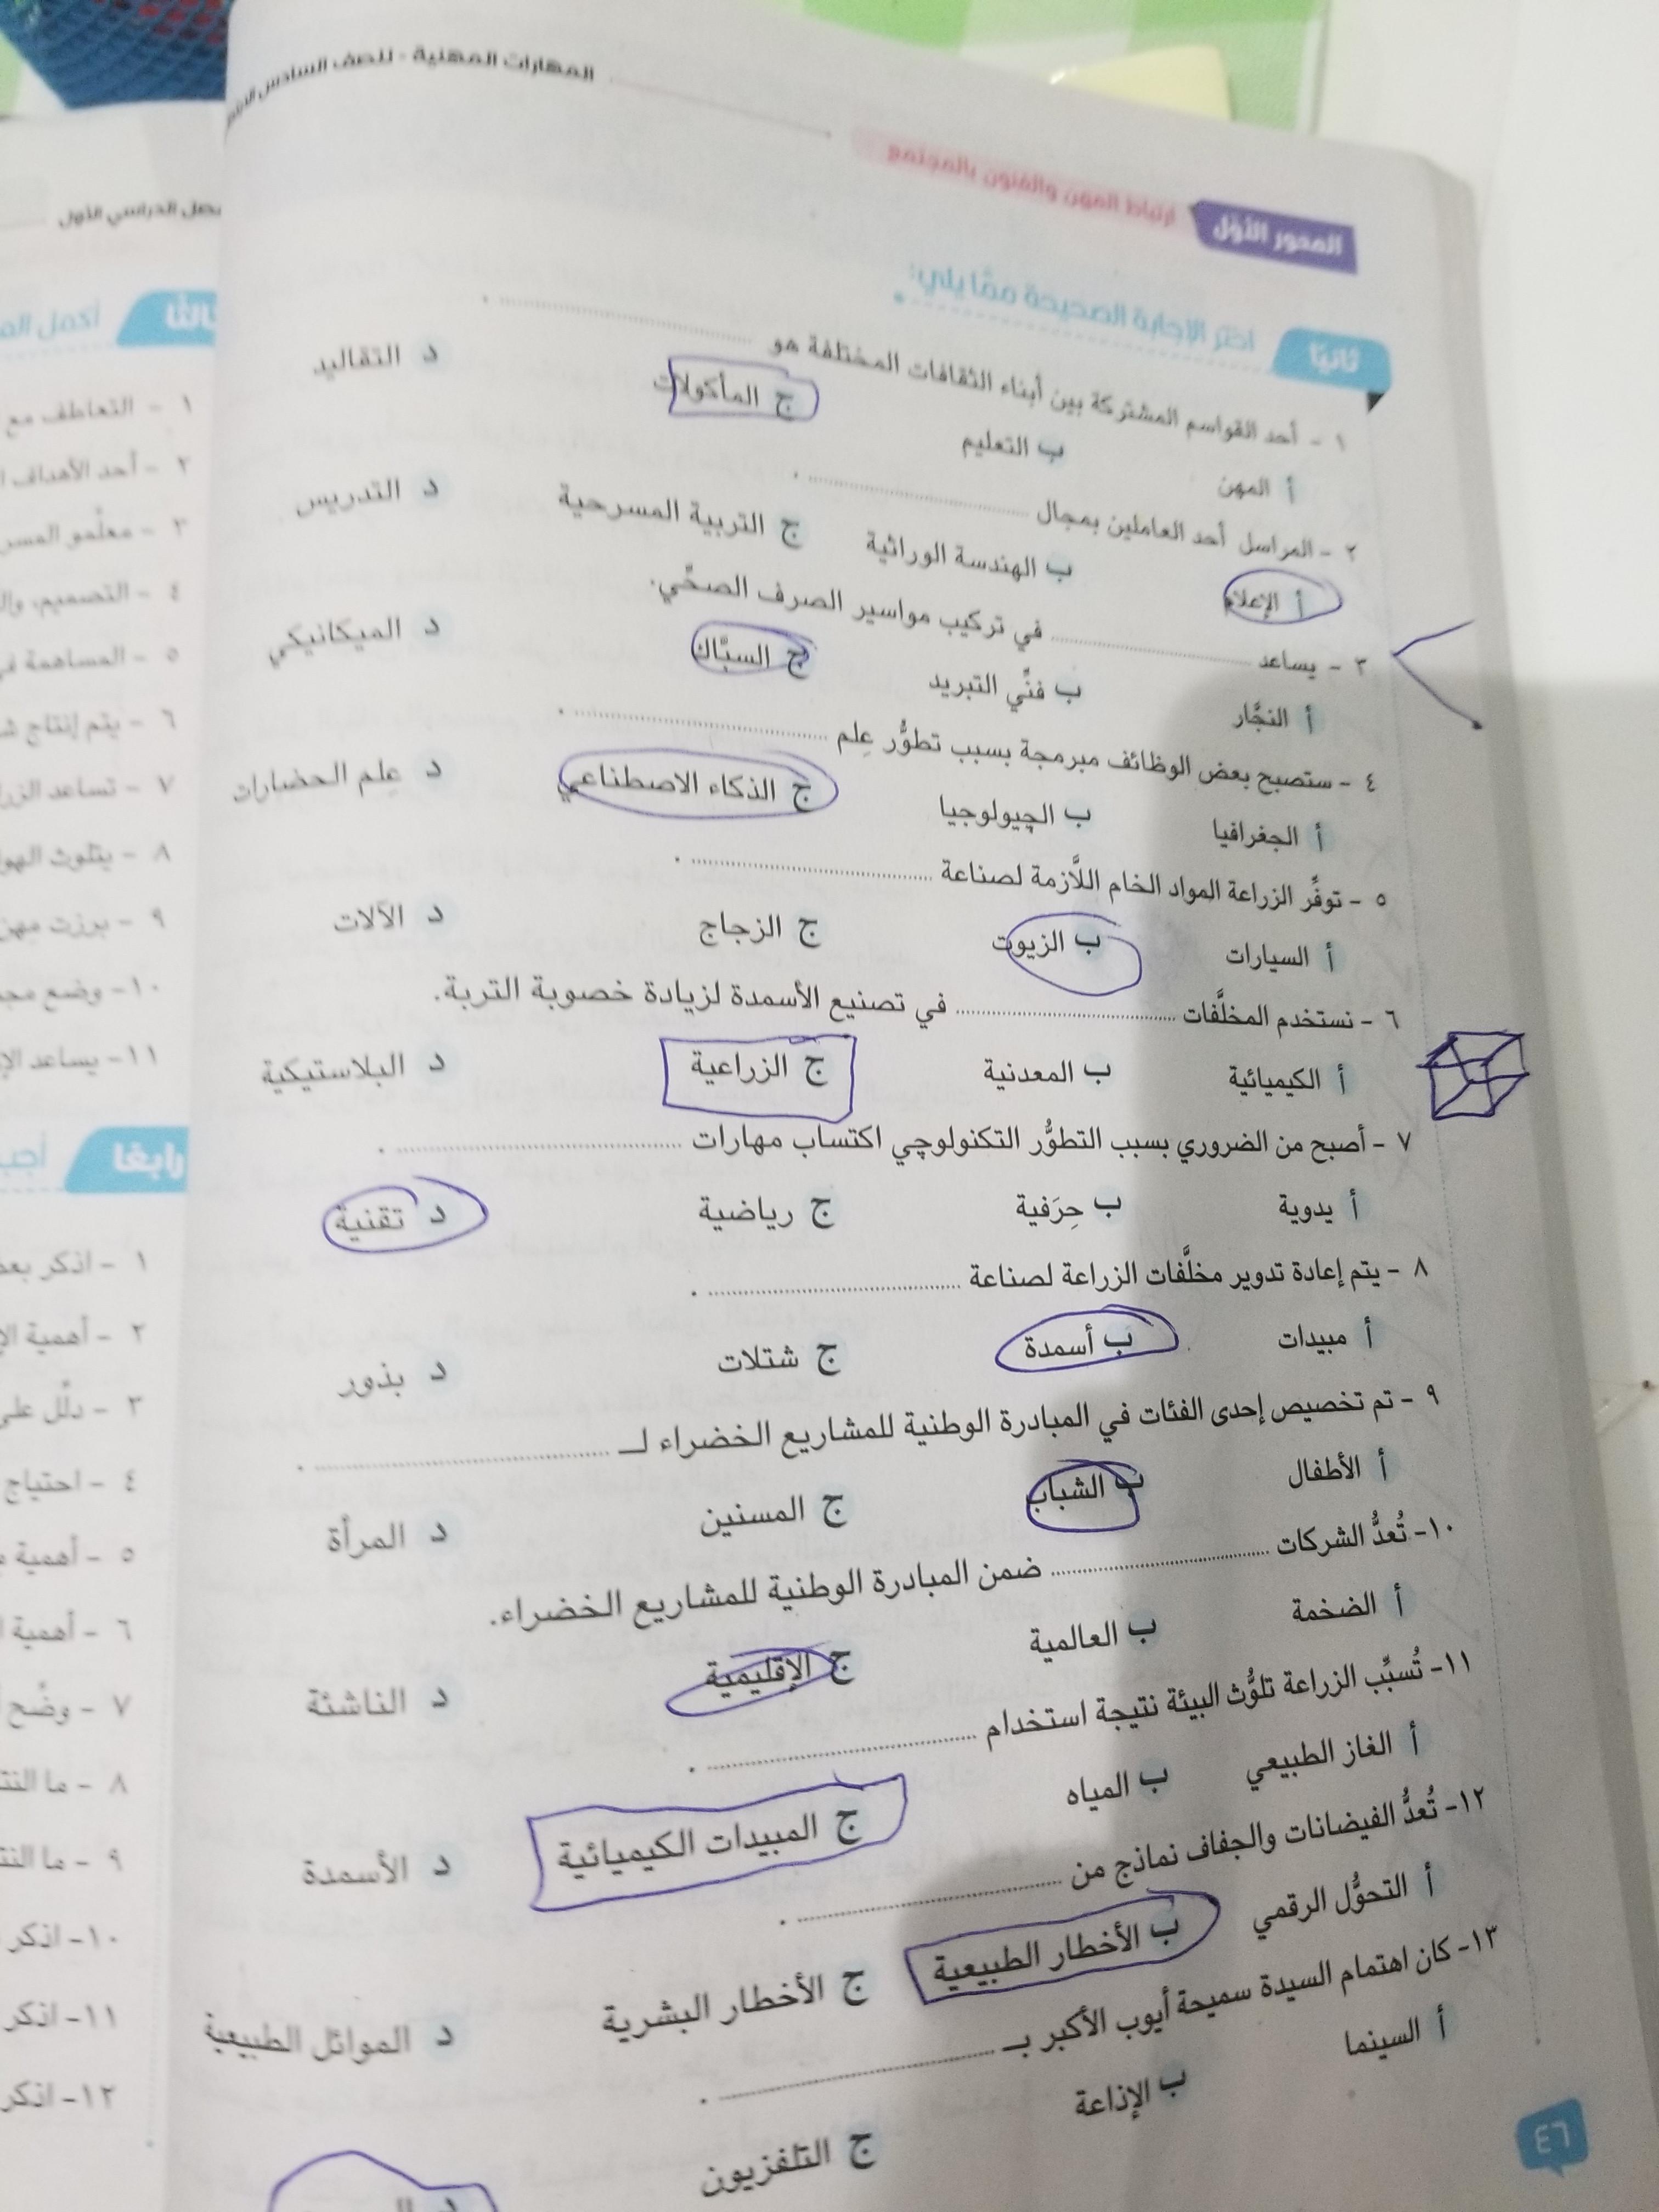 المهارات المهنية - للصف السادس
المحور الأول ارتباط المهن والفنون بالمجتمع
ثانيًا اختر الإجابة الصحيحة ممَّا يلي:
١ - أحد القواسم المشتركة بين أبناء الثقافات المختلفة هو ..........
أ المهن ب التعليم ج المأكولات د التقاليد
٢ - المراسل أحد العاملين بمجال ..........
أ الإعلام ب الهندسة الوراثية ج التربية المسرحية د التدريس
٣ - يساعد .......... في تركيب مواسير الصرف الصحِّي.
أ النجَّار ب فنِّي التبريد ج السبَّاك د الميكانيكي
٤ - ستصبح بعض الوظائف مبرمجة بسبب تطوُّر عِلم ..........
أ الجغرافيا ب الچيولوجيا ج الذكاء الاصطناعي د عِلم الحضارات
٥ - توفِّر الزراعة المواد الخام اللَّازمة لصناعة ..........
أ السيارات ب الزيوت ج الزجاج د الآلات
٦ - نستخدم المخلَّفات .......... في تصنيع الأسمدة لزيادة خصوبة التربة.
أ الكيميائية ب المعدنية ج الزراعية د البلاستيكية
٧ - أصبح من الضروري بسبب التطوُّر التكنولوچي اكتساب مهارات ..........
أ يدوية ب حِرَفية ج رياضية د تقنية
٨ - يتم إعادة تدوير مخلَّفات الزراعة لصناعة ..........
أ مبيدات ب أسمدة ج شتلات د بذور
٩ - تم تخصيص إحدى الفئات في المبادرة الوطنية للمشاريع الخضراء لـ ..........
أ الأطفال ب الشباب ج المسنين د المرأة
١٠- تُعدُّ الشركات .......... ضمن المبادرة الوطنية للمشاريع الخضراء.
أ الضخمة ب العالمية ج الإقليمية د الناشئة
١١- تُسبِّب الزراعة تلوُّث البيئة نتيجة استخدام ..........
أ الغاز الطبيعي ب المياه ج المبيدات الكيميائية د الأسمدة
١٢- تُعدُّ الفيضانات والجفاف نماذج من ..........
أ التحوُّل الرقمي ب الأخطار الطبيعية ج الأخطار البشرية د الموائل الطبيعية
١٣- كان اهتمام السيدة سميحة أيوب الأكبر بـ ..........
أ السينما ب الإذاعة ج التلفزيون د
٤٦
الدراسي الأول
ثالثًا أكمل
١ - التعاطف مع
٢ - أحد الأهداف
٣ - معلِّمو
٤ - التصميم،
٥ - المساهمة
٦ - يتم إنتاج
٧ - تساعد
٨ - يتلوث
٩ - برزت
١٠- وضع
١١- يساعد
رابعًا
١ - اذكر
٢ - أهمية
٣ - دلِّل على
٤ - احتياج
٥ - أهمية
٦ - أهمية
٧ - وضِّح
٨ - ما
٩ - ما
١٠- اذكر
١١- اذكر
١٢- اذكر